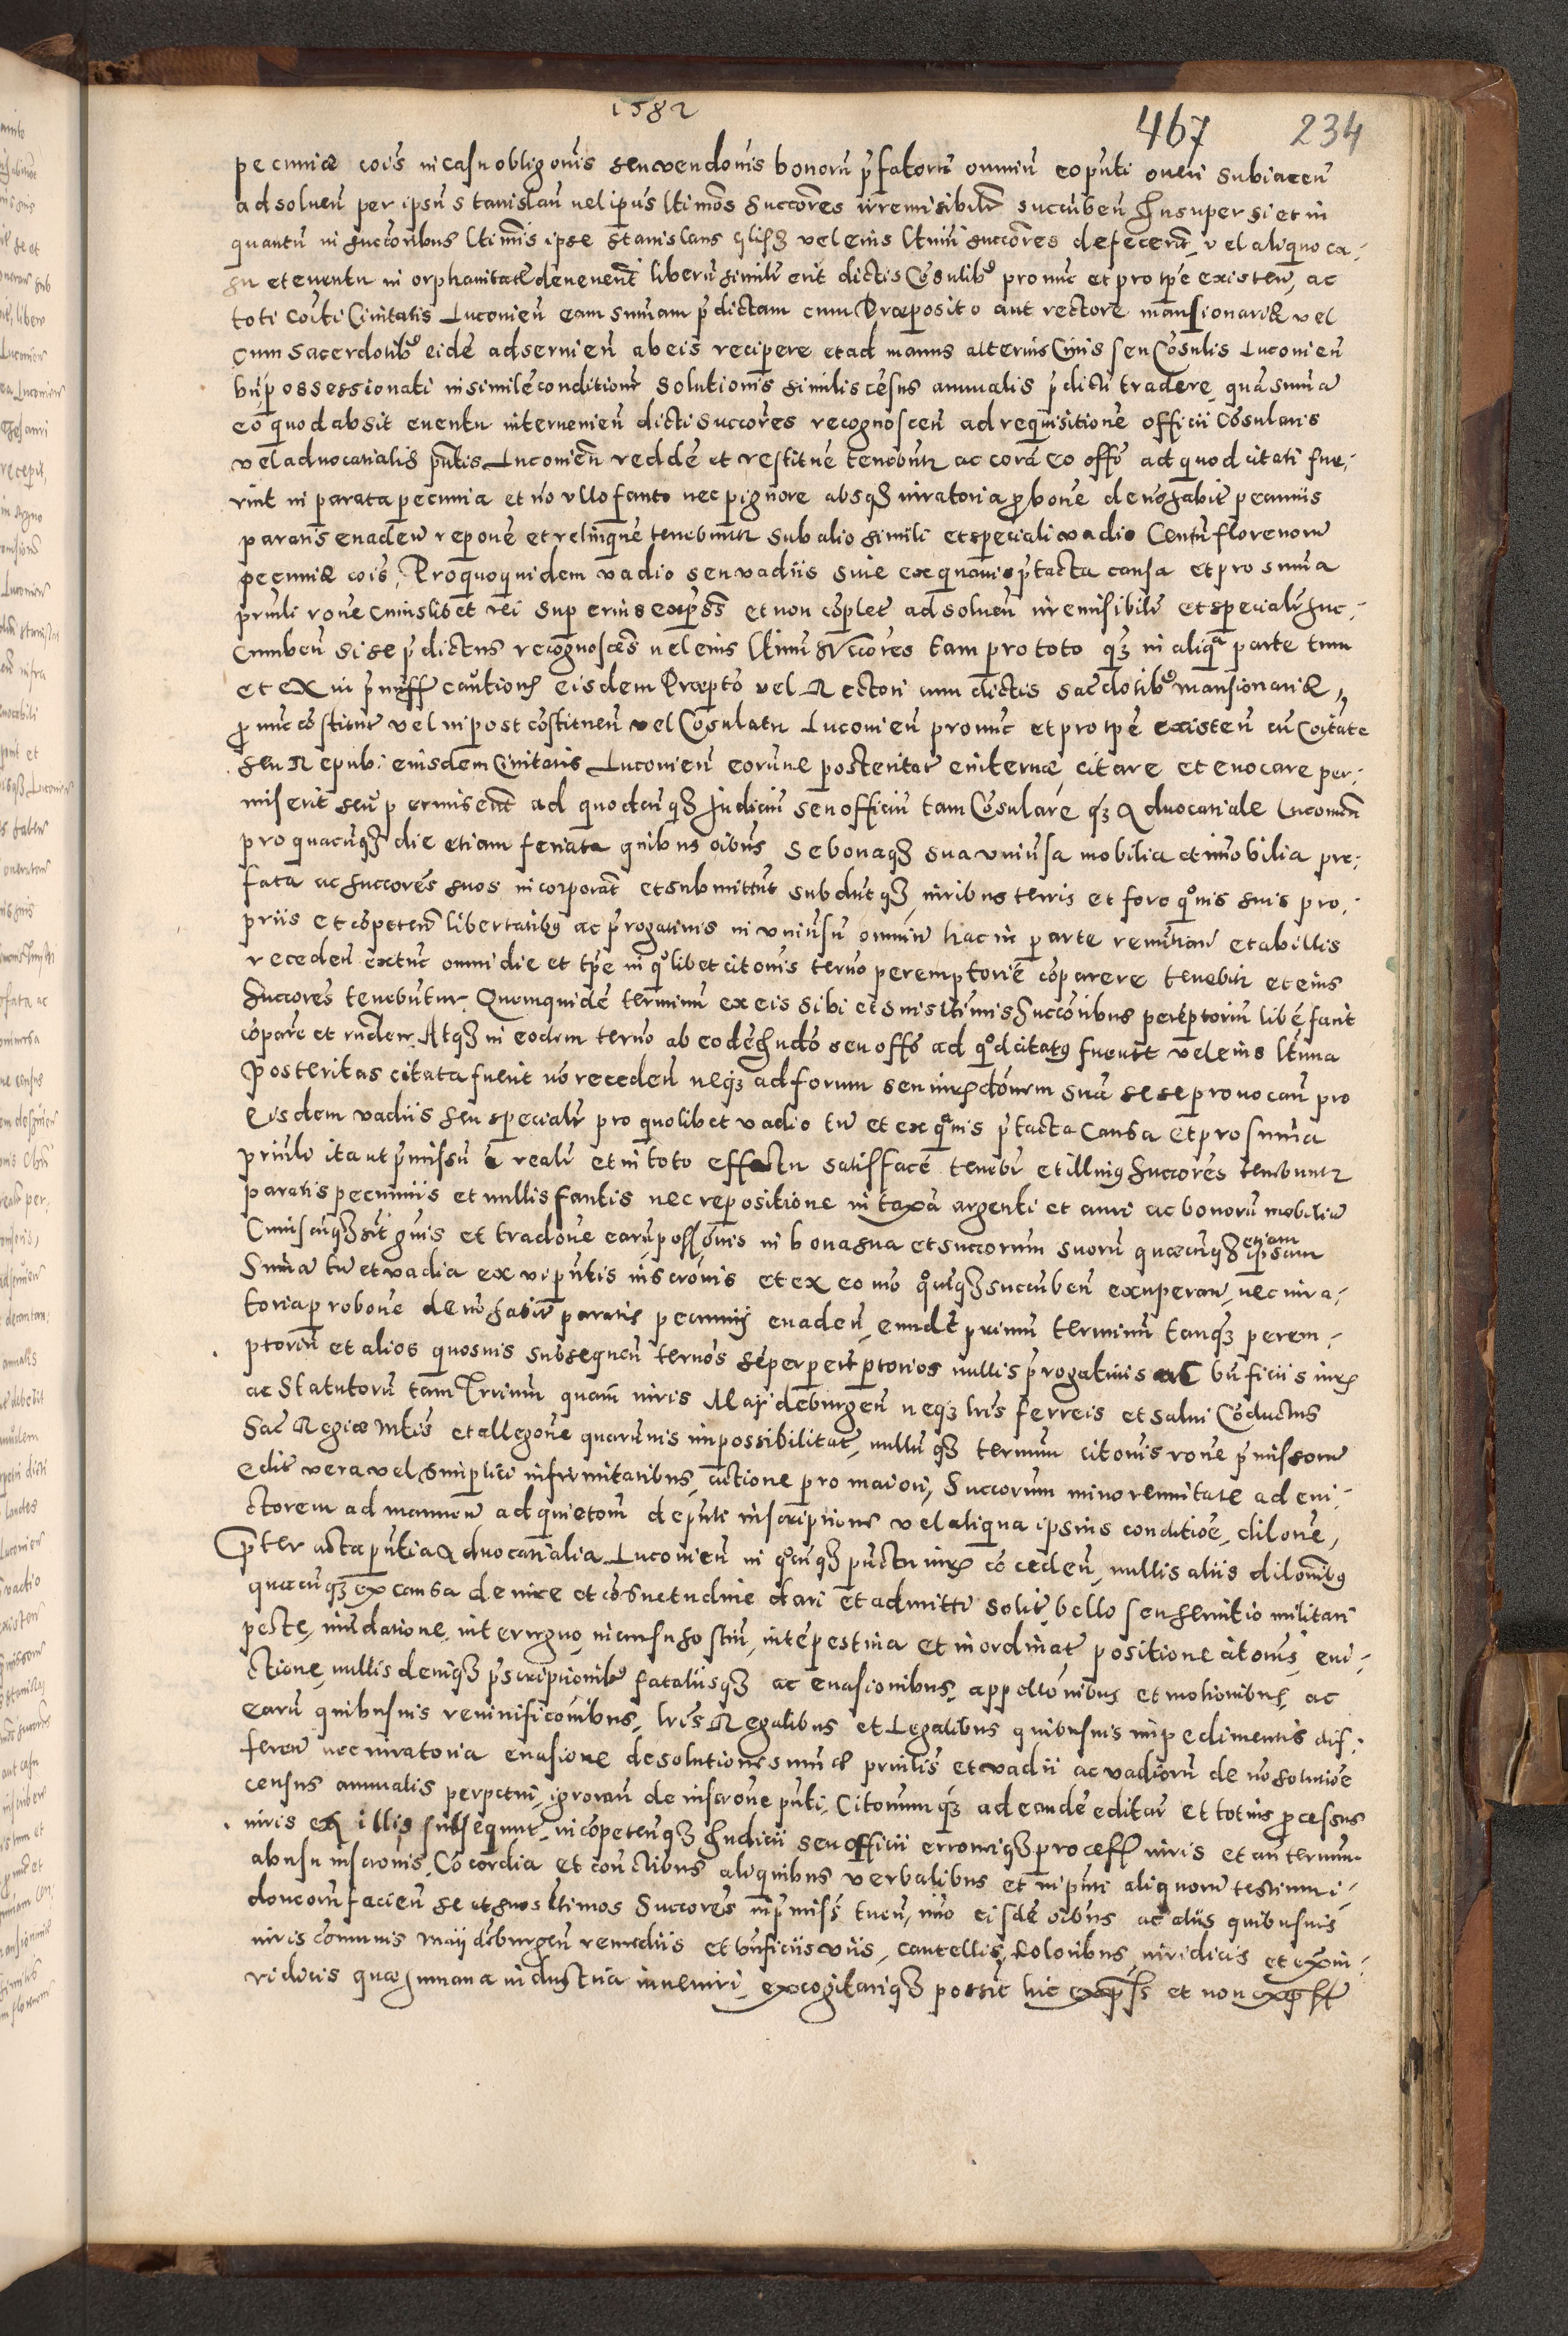 1582
467 234
pecuniæ cois in casu obligonis seu vendonis bonoru pfatoru omniu eo pnti oneri subiaceñ
ad solueñ per ipsu stanislau uel ipius ltimos succores irremisibilr succubeñ Insuper si et in
quantu in succoribus ltimis ipse stanislaus vel eius ltimi succores defecerit, vel aliquo ca-
su et eventu in orphanitate devenerit liberu simili erit dictis Cosulibus pro nuc et pro tpe existeñ, ac
toti coitti Civitatis Luconieñ eam summam pdictam cum Præposito aut rectore mansionariæ vel
cum sacerdotibus eide adservieñ ab eis recipere et ad manus alterius Civis seu Cosulis Luconieñ
bñ possessionati in simile conditione solutionis similis cesus annualis pdicti tradere, qua suma
eo quod absit eventu intervenieñ dicti succores recognosceñ ad requisitione officii Cosularis
vel advocatialis pntis Luconieñ redde et restitue tenebutur ac cora eo offo ad quod citati fue-
rint in parata pecunia et no ullo fanto nec pignore absq iuratoria pbone de no habit pecuniis
paratis evadeñ repone et relinque tenebuntur sub alio simili et speciali vadio Centu florenoru
pecuniæ cois, Pro quo quidem vadio seu vadiis sive ex quavis ptacta causa et pro suma
prinli rone cuiuslibet rei sup erius expss et non coplet ad solueñ irremisibilr et specialr suc-
cumbeñ si se pdictus recognosces uel eius ltimi succores tam pro toto q in aliqa parte tum
et ex in pmiss cautione eisdem Præpto vel Rectori cum dictis sacdotibus mansionariæ,
p nuc costitut vel in post costitueñ vel Cosulatu Luconieñ pro nuc et pro tpe existeñ cu Coitate
seu Repub: eiusdem Civitatis Luconieñ eorune posteritat eviternæ citare et evocare per-
miserit seu permiserit ad quodcuq Judiciu seu officiu tam Cosulare q Advocatiale Luconieñ
pro quacuq die etiam feriata quibus oibus se bonaq sua univsa mobilia et imobilia pre-
fata ac succores suos incorporat et submittut subdut q, iuribus terris et foro quis suis pro-
priis et copeteñ libertatibus ac progativis in univsu omniu hac in parte renutiañ et ab illis
recedeñ extuc omni die et tpe in quolibet citonis termo peremptorie coparere tenebitur et eius
succores tenebuntur. Quemquide terminu ex eis sibi et suis ltimis succoribus perēptoriu libe facit
copare et rnder. Atq in eodem termo ab eode Judo seu offo ad qd citatus fuerit vel eius ltima
posteritas citata fuerit no recedeñ neq ad forum seu iurisdonem sua sese provocañ pro
eisdem vadiis seu specialr pro quolibet vadio tu et ex quis ptacta Causa et pro suma
prinli ita ut pmissu e realr et in toto effectu satisface tenebr et illius succores tenebuntur
paratis pecuniis et nullis fantis nec repositione in taxa argenti et auri ac bonoru mobiliu
Cuiscuq sit gnis et tradone earu possonis in bona sua et succorum suoru quæcuq etiam ipsam
Suma tu et vadia ex vi pntis inscronis et ex eo mo quuq succubeñ exuperañ, nec iura-
toria probone de no habit paratis pecuniis evadeñ, eunde primu terminu tanq perem-
ptoriu et alios quosvis subsequeñ termos seper perēptorios nullis progativis ac bnficiis iuris
ac Statutoru tam Trium quam iuris Maideburgeñ neq lris ferreis et salvi Coductus
Sac Regiæ Mtis et allegone quarumvis impossibilitat, nullu q termum citonis rone pmissoru
edit vera vel simplici infirmitatibus, actione pro maiori, Succorum minorennitate ad evi-
ctorem ad manum ad quietom de pnti inscriptione vel aliqua ipsius conditioe, dilone,
Pter acta pntia Advocatialia Luconieñ in quocuq puctu iuris cocedeñ, nullis aliis dilonibus
quacuq ex causa de iure et cosuetudine dari et admitti solit, bello seu servitio militari
peste, inudatione, interregno, incursu hostiu, intepestiva et inordinat positione citonis, evi-
ctione, nullis deniq pscriptionibus fataliisq ac evasionibus, appellonibus et motionibus, ac
earu quibusvis revivificonibus, lris Regalibus et Legalibus quibusvis impedimentis dif-
fereñ nec iuratoria evasione de solutione sumæ prinlis et vadii ac vadioru de no solutioe
census annualis perpetui, ignorañ de inscrone pnti, Citonumq ad eande editar et totius pcessus
iuris ex illis subsequut, incopetenq Judicii seu officii erroneiq process iuris et añ termum
abusu inscronis, Cocordia et conctibus aliquibus verbalibus et in pnti aliquoru testimoni-
doneorum facieñ se et suos ltimos Succores in pmiss tueñ, imo eisde oibus ac aliis quibusvis
iuris comunis Maijdeburgeñ remediis et bnficiis viis, cautellis, coloribus, iuridicis et exiu-
ridicis quæ humana industria inveniri, excogitariq possit hic expss et non expsst